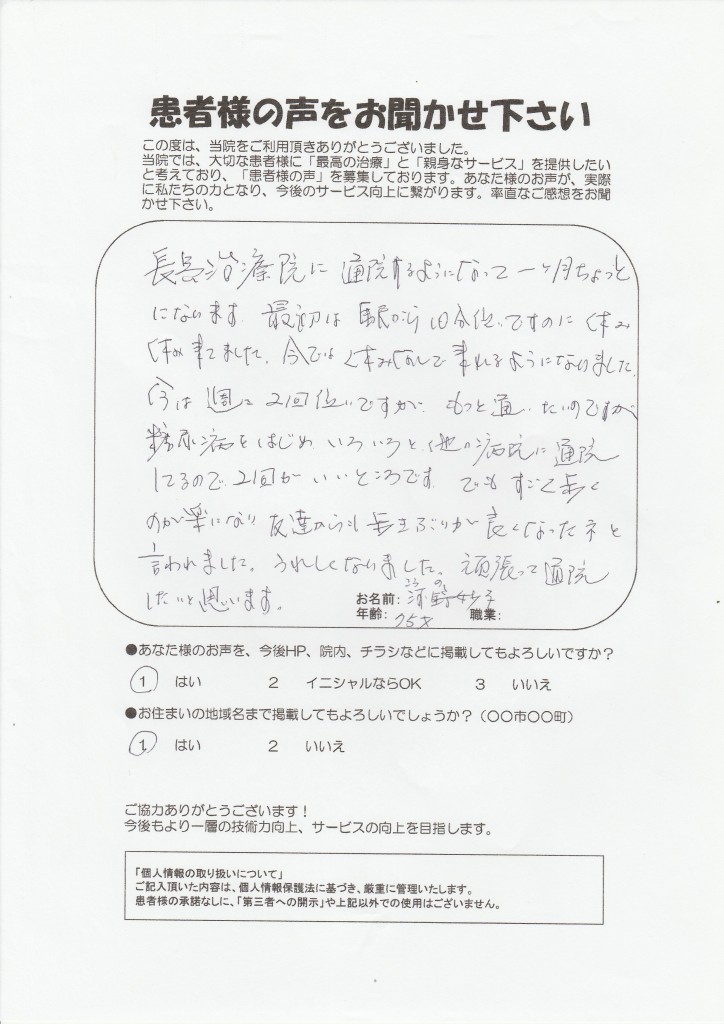 患者様の声をお聞かせ下さい
この度は、当院をご利用頂きありがとうございました。
当院では、大切な患者様に「最高の治療」と「親身なサービス」を提供したい
と考えており、「患者様の声」を募集しております。あなた様のお声が、実際
に私たちの力となり、今後のサービス向上に繋がります。率直なご感想をお聞
かせ下さい。
長島治療院に通院するようになって一ヶ月ちょっと
になります。最初は駅から10分位ですのに休み
休み来てました。今では休みなしで来れるようになりました。
今は週に2回位ですが、もっと通いたいのですが
糖尿病をはじめ いろいろと他の病院に通院
してるので、2回がいいところです。でもすごく歩く
のが楽になり 友達からも歩きぶりが良くなったネと
言われました。うれしくなりました。頑張って通院
したいと思います。
お名前:
年齢: 75才 職業:
●あなた様のお声を、今後HP、院内、チラシなどに掲載してもよろしいですか？
1 はい 2 イニシャルならOK 3 いいえ
●お住まいの地域名まで掲載してもよろしいでしょうか？（〇〇市〇〇町）
1 はい 2 いいえ
ご協力ありがとうございます！
今後もより一層の技術力向上、サービスの向上を目指します。
「個人情報の取り扱いについて」
ご記入頂いた内容は、個人情報保護法に基づき、厳重に管理いたします。
患者様の承諾なしに、「第三者への開示」や上記以外での使用はございません。